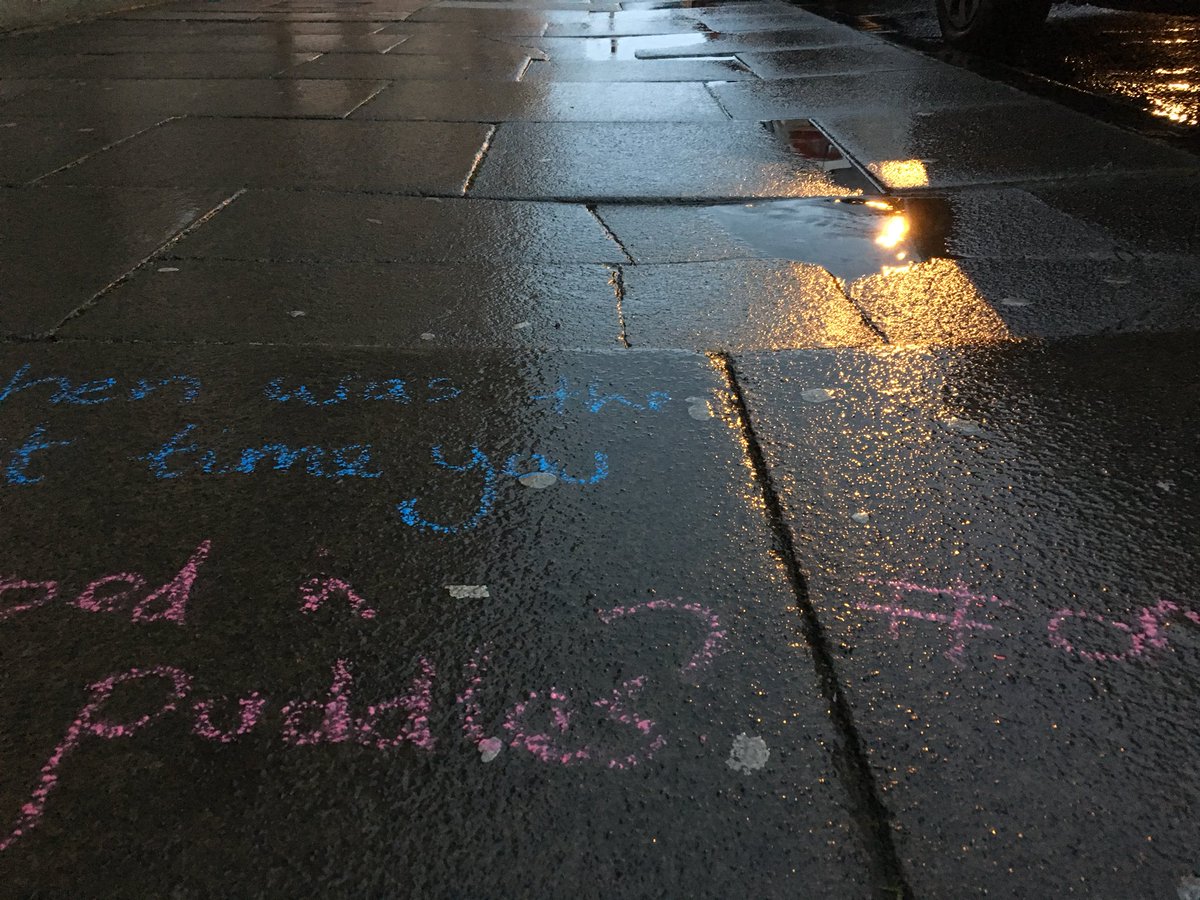 hen was the
t time you
ood in
puddles? #or